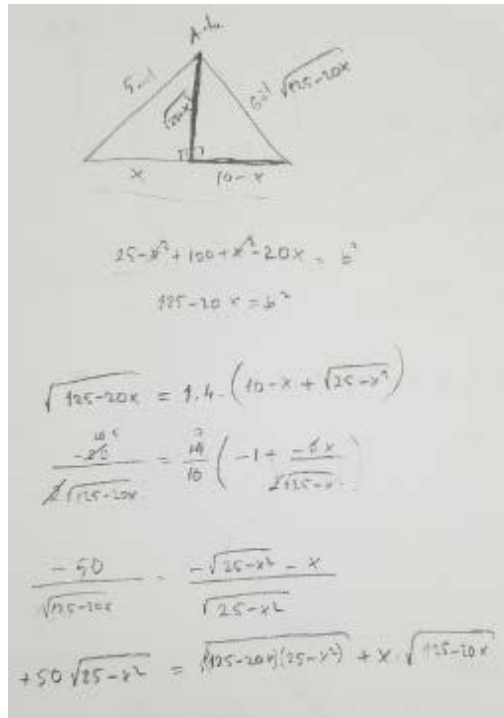 √125-20x
√25-x²
x
10-x
25-x²+100+x²-20x = b²
125-20x = b²
√125-20x = 1.4.(10-x+√25-x²)
-50 / √125-20x = -√25-x² - x / √25-x²
+50√25-x² = √(125-20x)(25-x²) + x.√125-20x